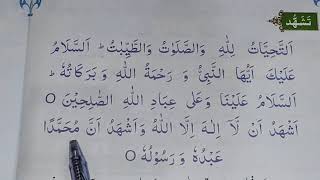 تشهد
اَلتَّحِیَّاتُ لِلّٰهِ وَالصَّلَوٰتُ وَالطَّیِّبٰتُ ؕ اَلسَّلَامُ
عَلَیْكَ اَیُّهَا النَّبِیُّ وَ رَحْمَةُ اللّٰهِ وَ بَرَكَاتُهٗ ؕ
اَلسَّلَامُ عَلَیْنَا وَعَلٰی عِبَادِ اللّٰهِ الصّٰلِحِیْنَ O
اَشْهَدُ اَنْ لَّآ اِلٰـهَ اِلَّا اللّٰهُ وَاَشْهَدُ اَنَّ مُحَمَّدًا
عَبْدُهٗ وَ رَسُوْلُهٗ O